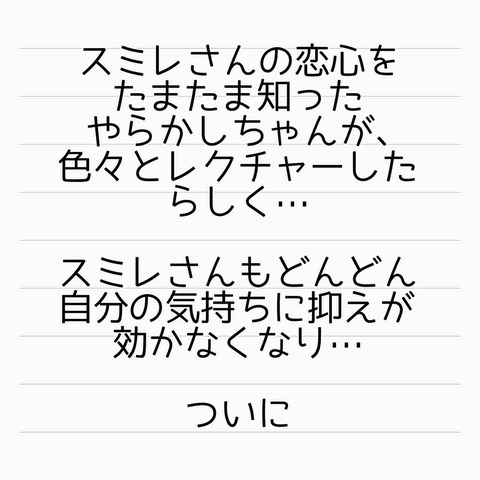 スミレさんの恋心を
たまたま知った
やらかしちゃんが、
色々とレクチャーした
らしく…
スミレさんもどんどん
自分の気持ちに抑えが
効かなくなり…
ついに